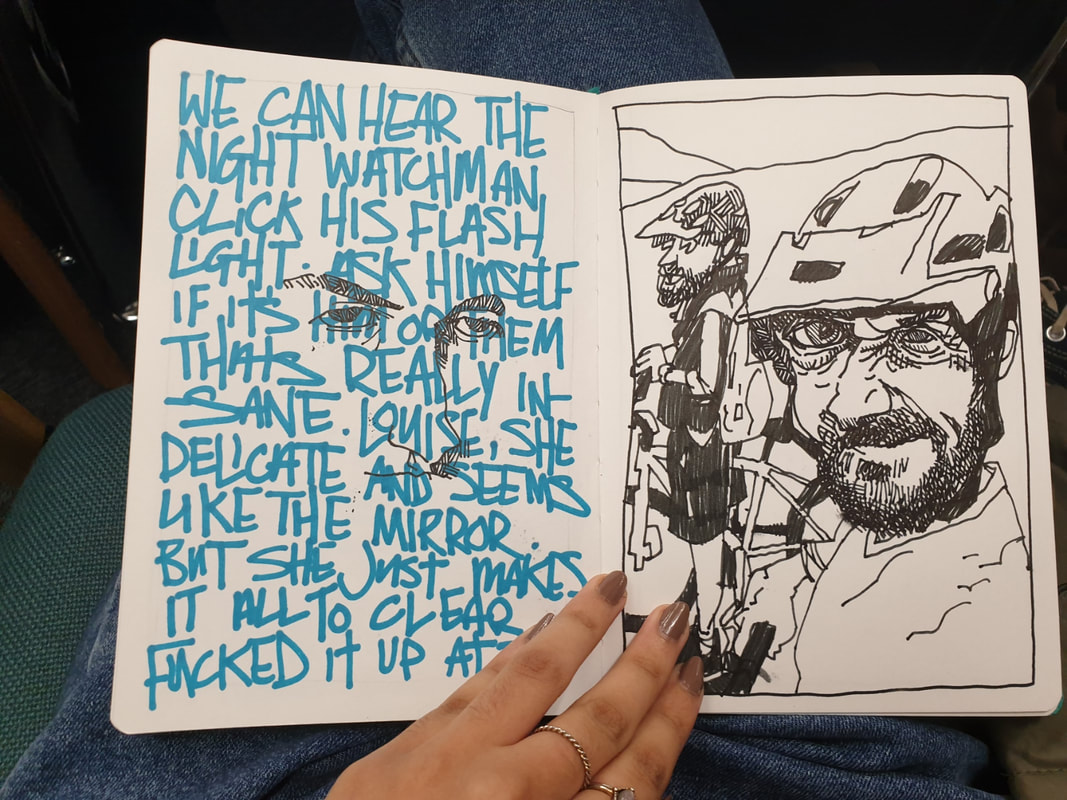 WE CAN HEAR THE
NIGHT WATCHMAN
CLICK HIS FLASH
LIGHT. ASK HIMSELF
IF ITS HIM OR THEM
THATS REALLY IN-
SANE. LOUISE, SHE
DELICATE AND SEEMS
LIKE THE MIRROR.
BUT SHE JUST MAKES
IT ALL TO CLEAR
FUCKED IT UP AT